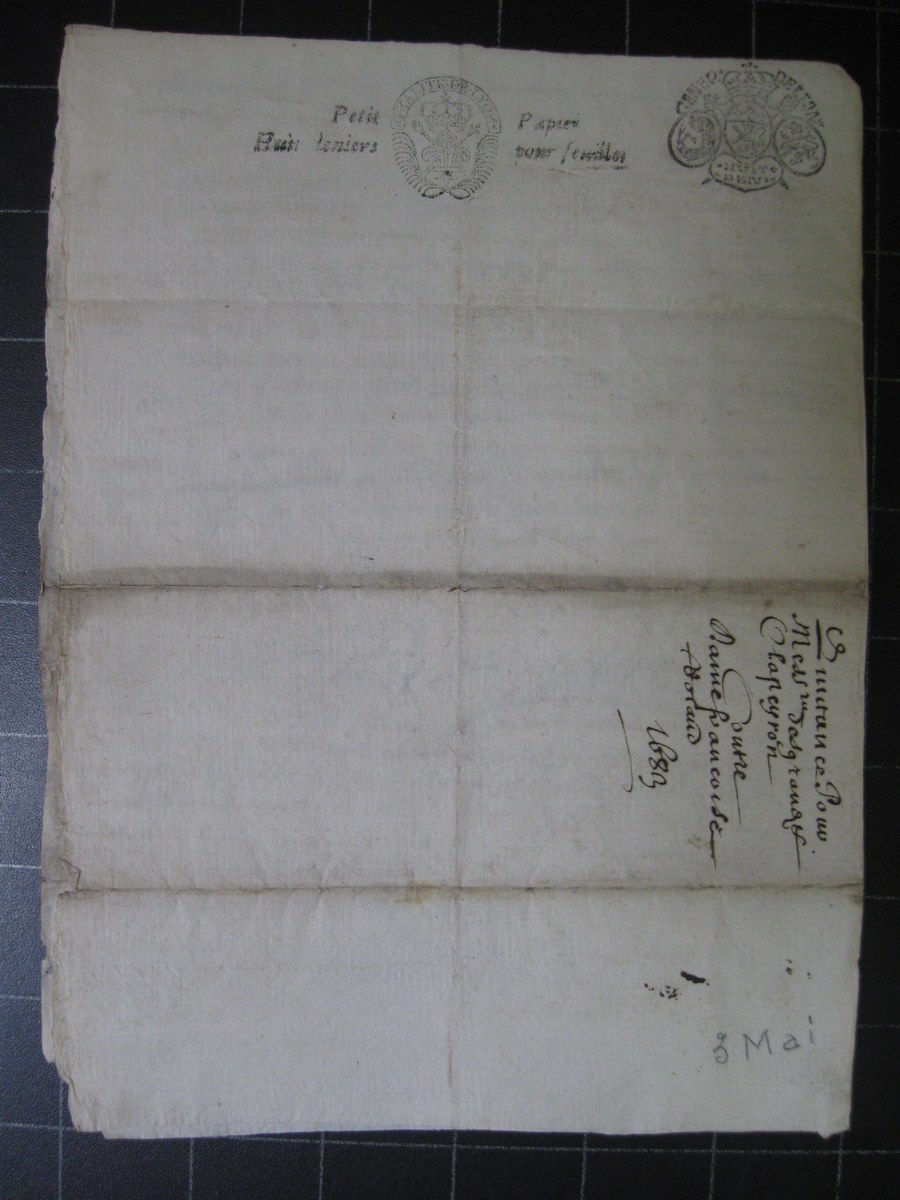 Petit Papier
Huit deniers pour feuilles
HUIT
DEN
Quittance Pour
Mess.rs desgranges
Clapeyron
Contre
Dame francoise
1683
3 Mai